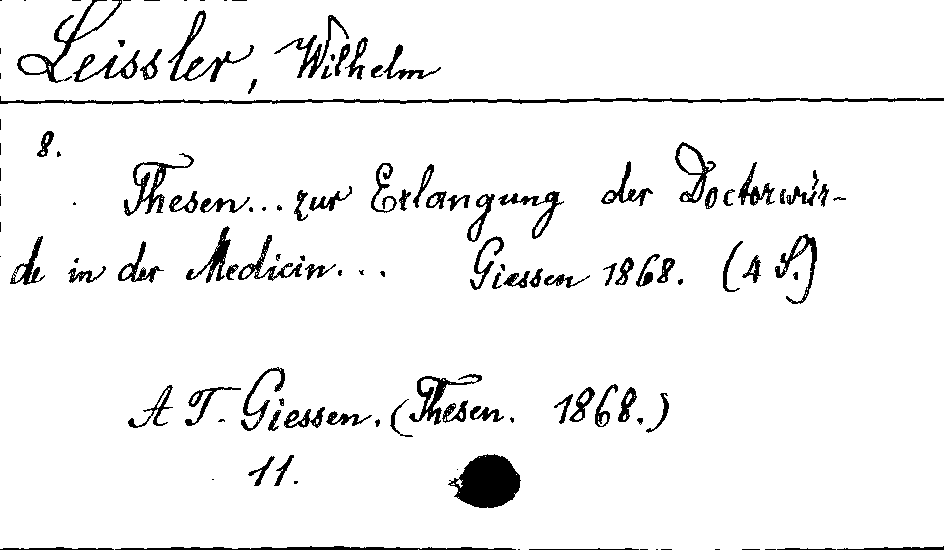 Leissler, Wilhelm
8.
Thesen... zur Erlangung der Doctorwür-
de in der Medicin... Giessen 1868. (4 S.)
A T. Giessen. (Thesen. 1868.)
11.